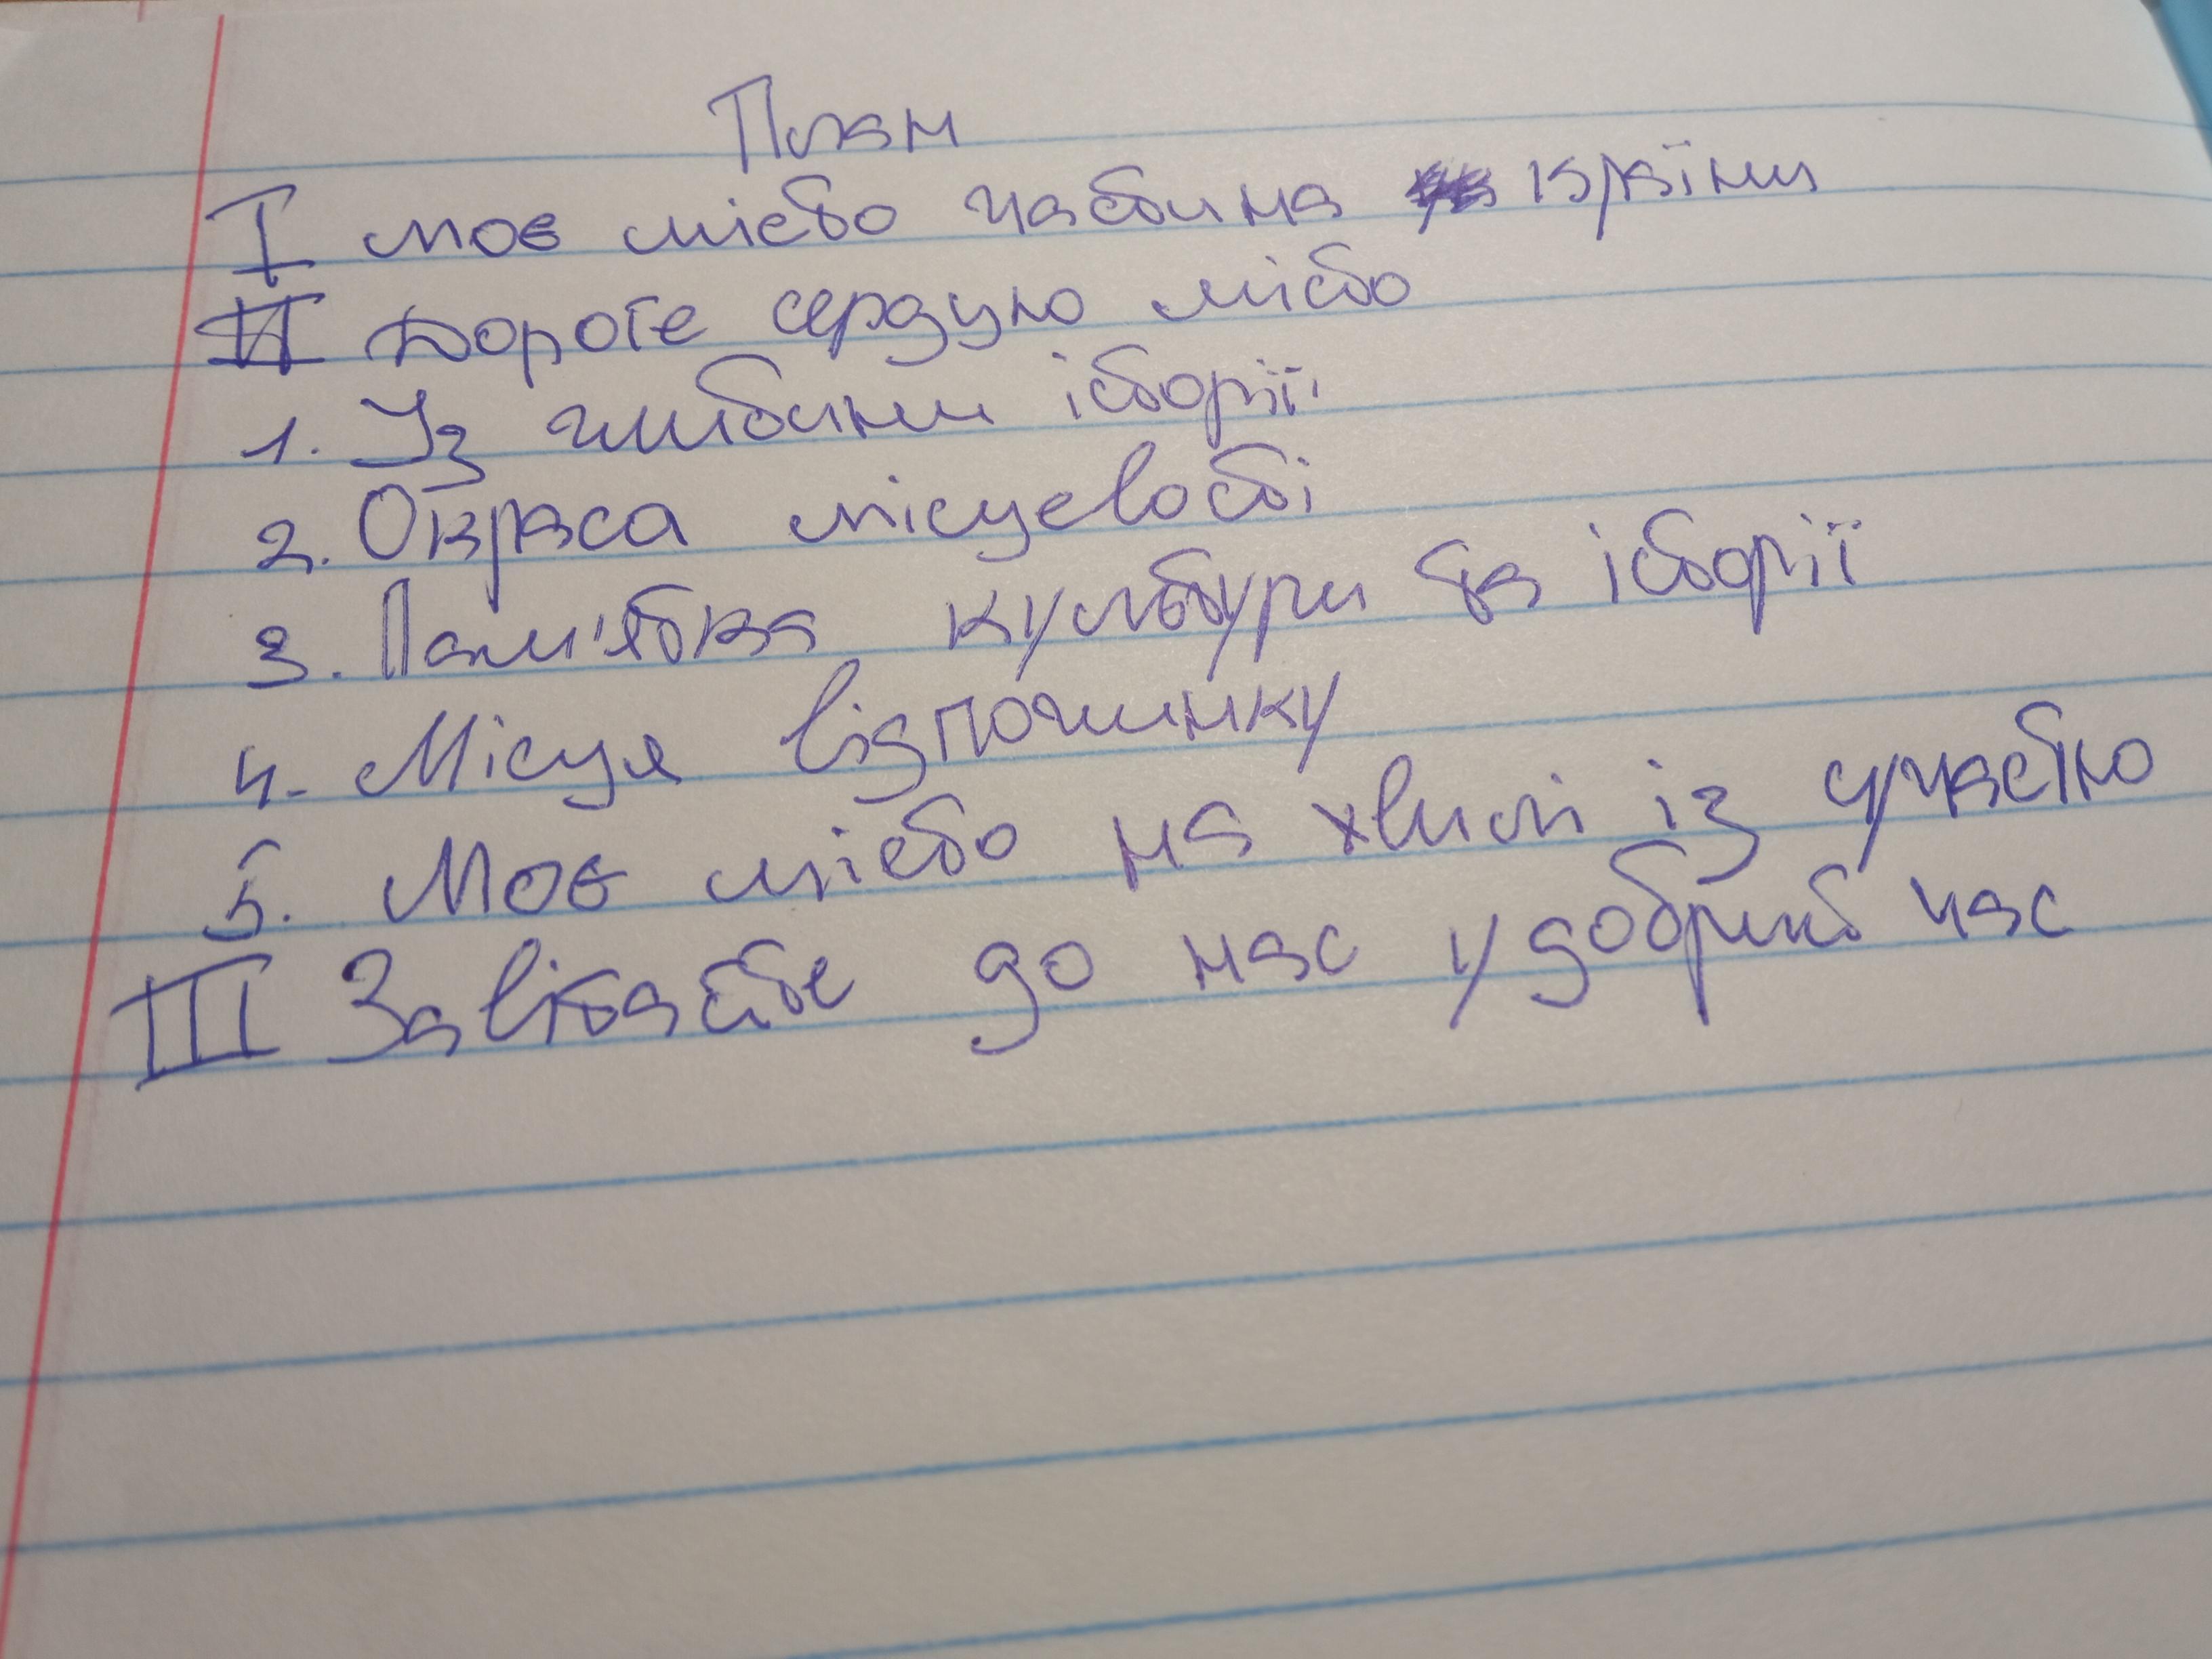 План
I моє місто частина країни
II Дороге серцю місто
1. Із глибини історії
2. Окраса місцевості
3. Пам'ятка культури та історії
4. Місця відпочинку
5. Моє місто на хвилі із участю
III Завітайте до нас у добрий час